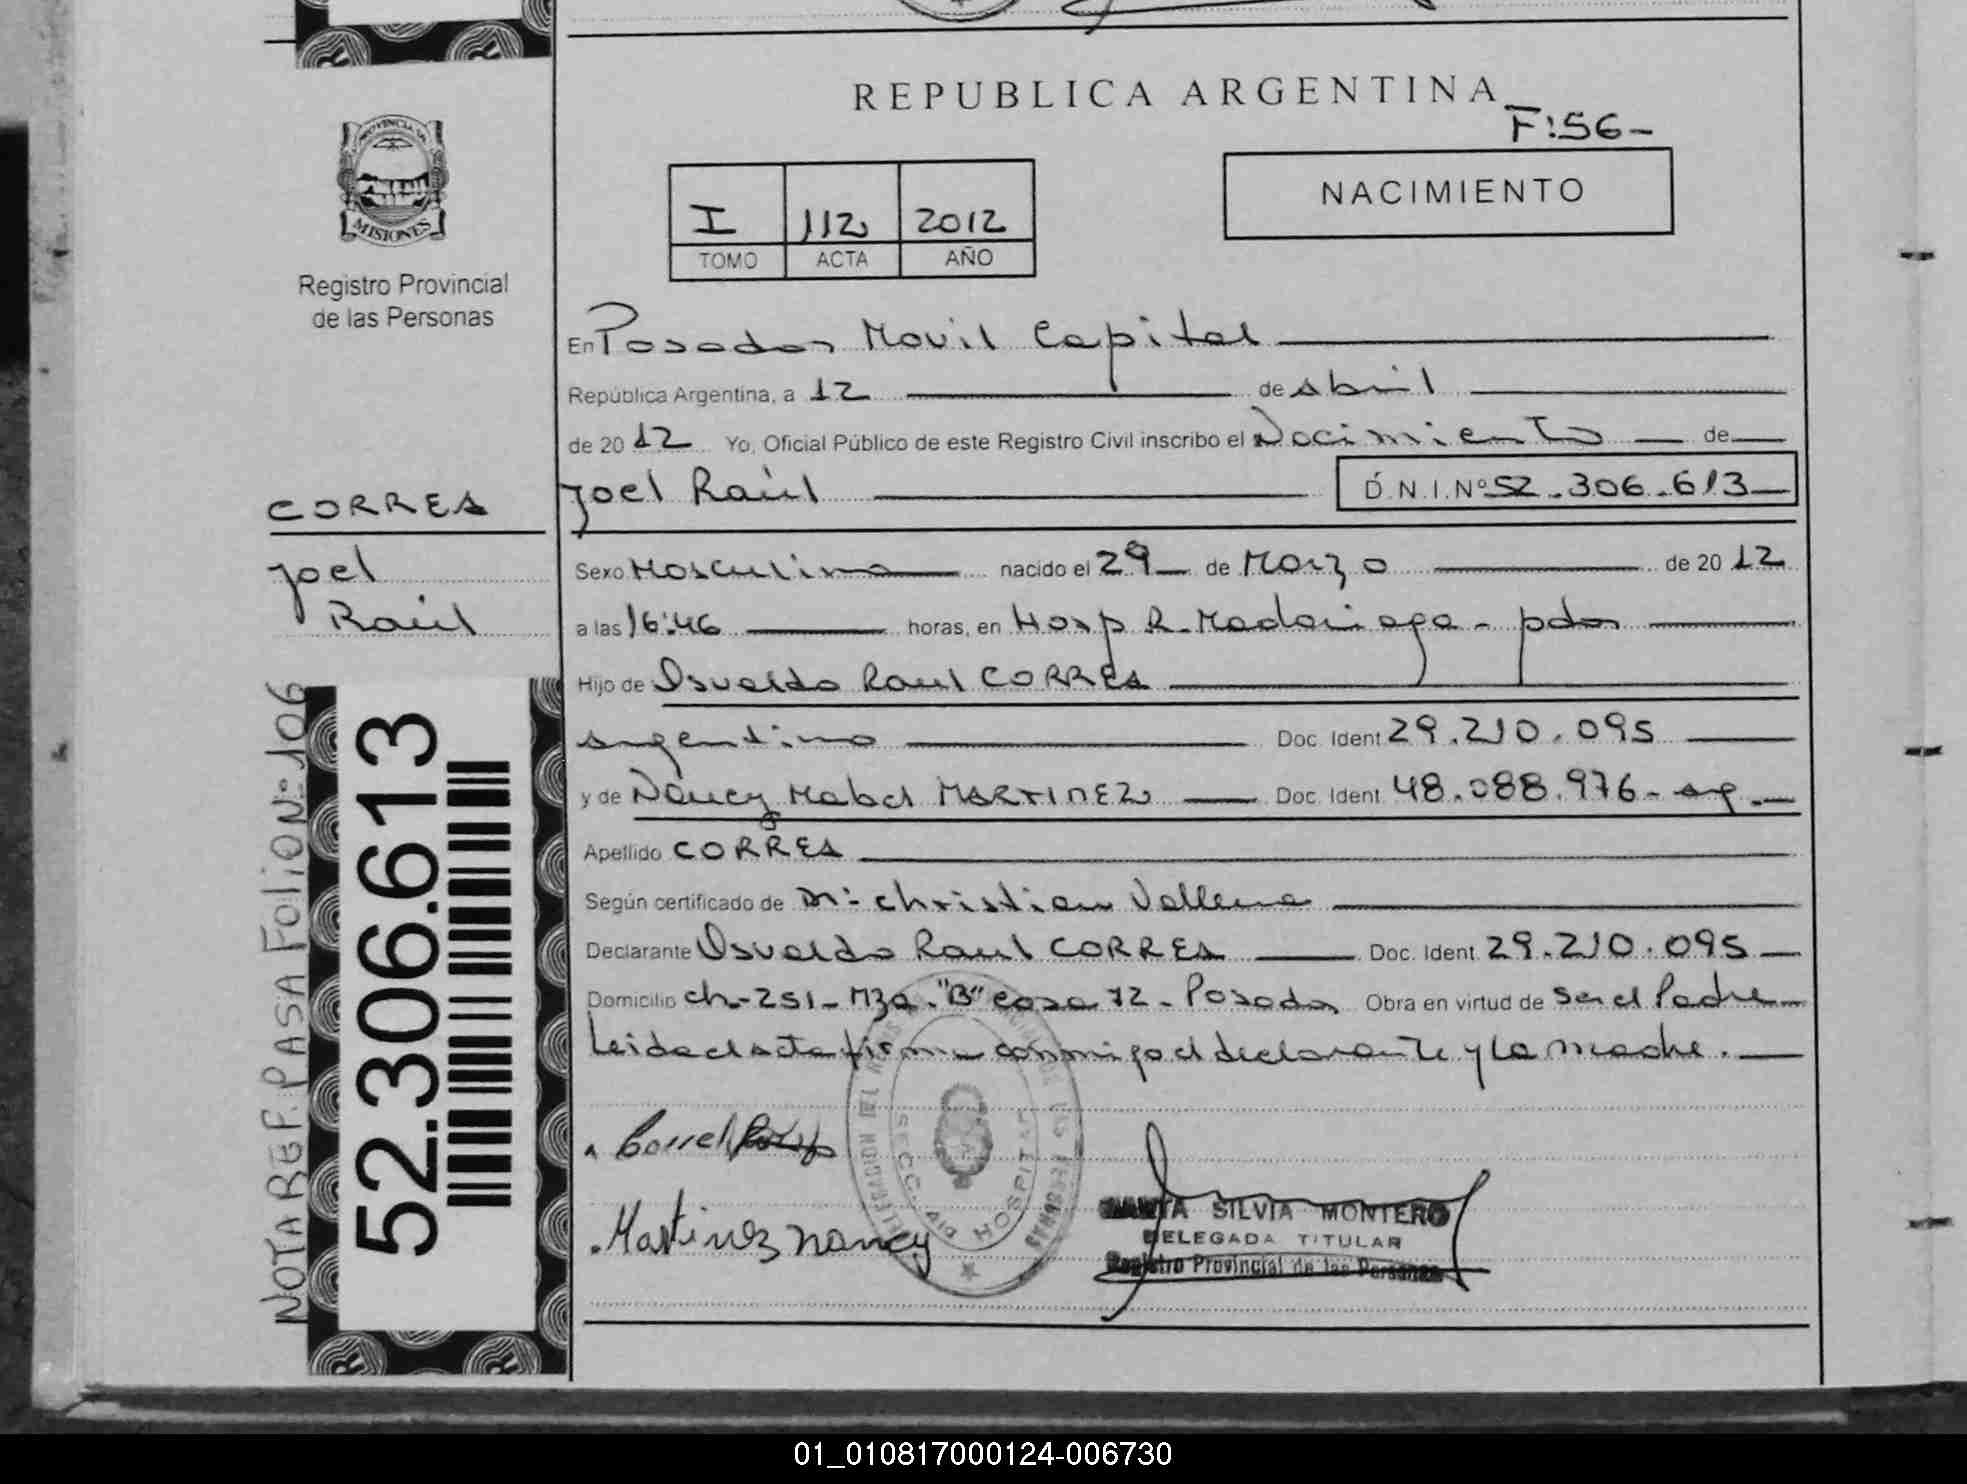 REPUBLICA ARGENTINA
F:56-
PROVINCIA DE
MISIONES
Registro Provincial
de las Personas
I 112 2012
TOMO ACTA AÑO
NACIMIENTO
En Posadas Movil Capital
República Argentina, a 12 de abril
de 2012 Yo, Oficial Público de este Registro Civil inscribo el Nacimiento de
Joel Raúl D.N.I.Nº 52.306.613
CORREA
Joel
Raúl
Sexo Masculino nacido el 29 de Marzo de 2012
a las 16:46 horas, en Hosp R. Madariaga - pdas
Hijo de Osvaldo Raul CORREA
argentino Doc. Ident. 29.210.095
y de Nancy Mabel MARTINEZ Doc. Ident. 48.088.976 - arg.
Apellido CORREA
Según certificado de Dr. Christian
Declarante Osvaldo Raul CORREA Doc. Ident. 29.210.095
Domicilio ch-251-Mza."B" casa 72 - Posadas Obra en virtud de Ser el Padre
Leida el acta firma conmigo el declarante y la madre.
NOTA REF. PASA Folio Nº 106
52.306.613
Martinez Nancy
SECC. HOSPITAL
SILVIA MONTERO
DELEGADA TITULAR
Registro Provincial de las Personas
01_010817000124-006730